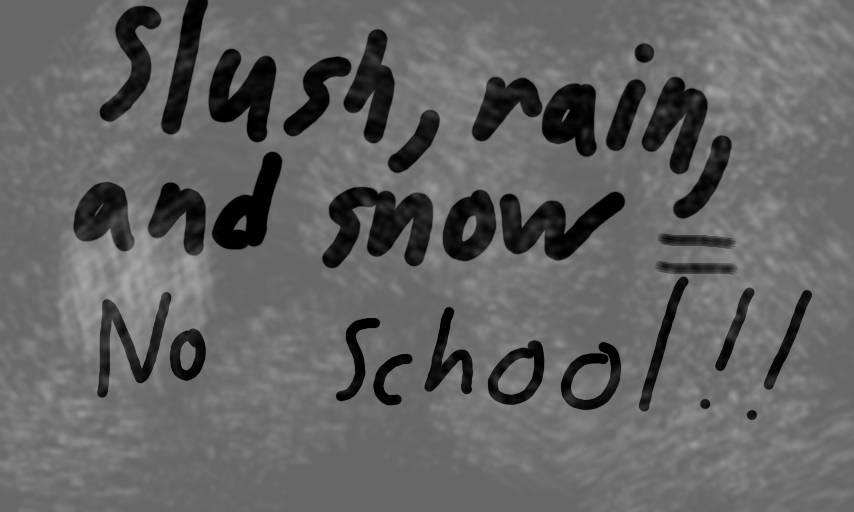 Slush, rain,
and snow =
No School!!